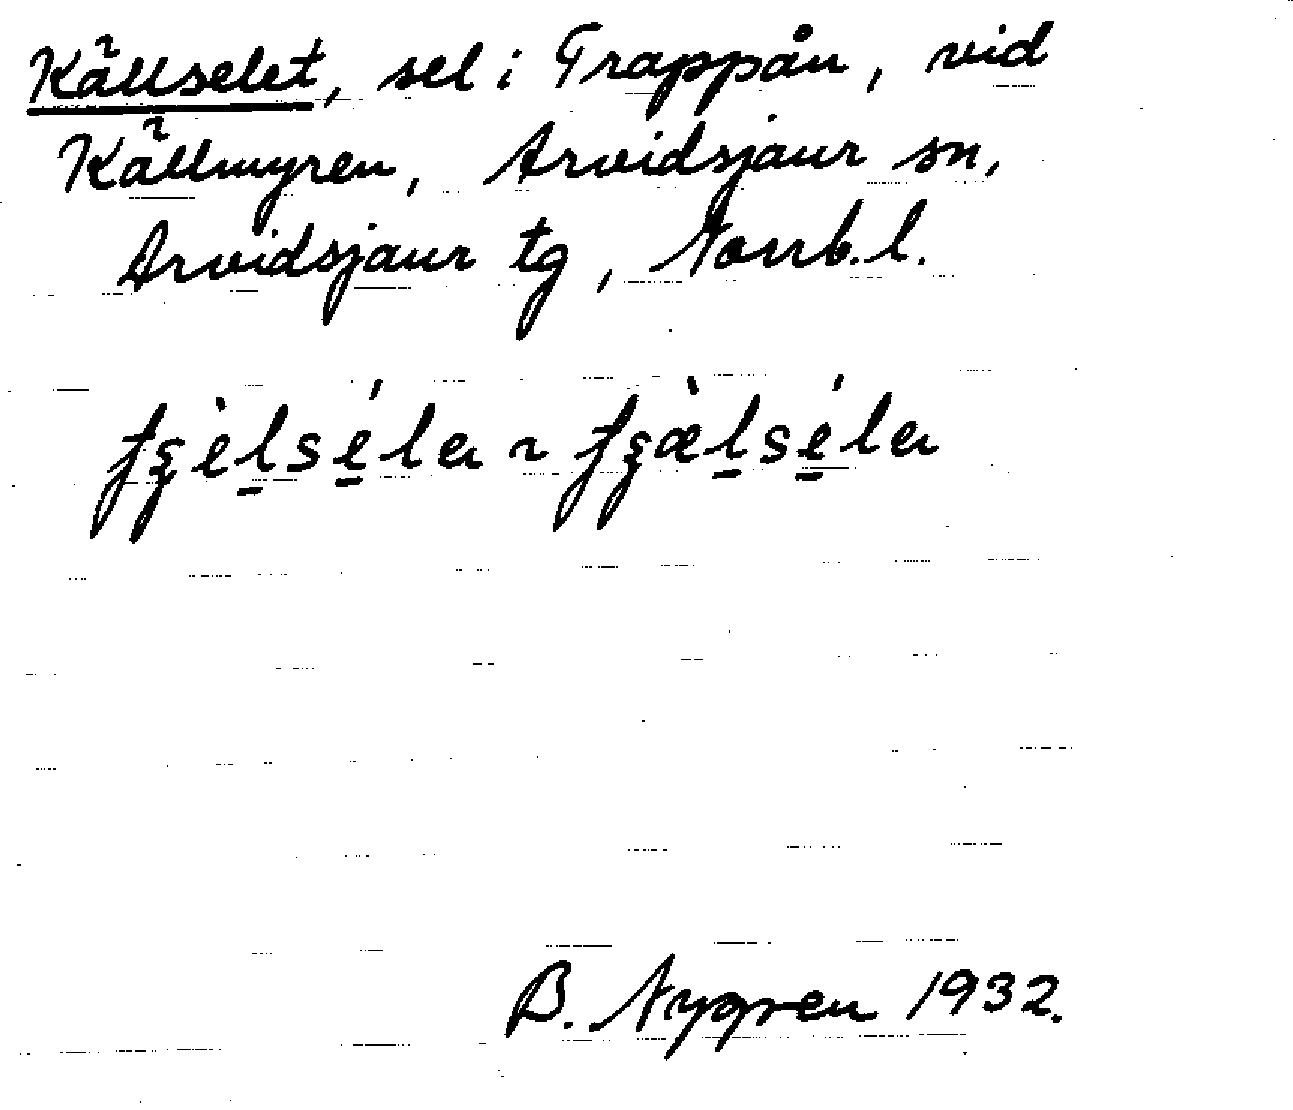 Källselet, sel i Trappån, vid
Källmyren, Arvidsjaur sn,
Arvidsjaur tg, Norrb. l.
B. Nygren 1932.